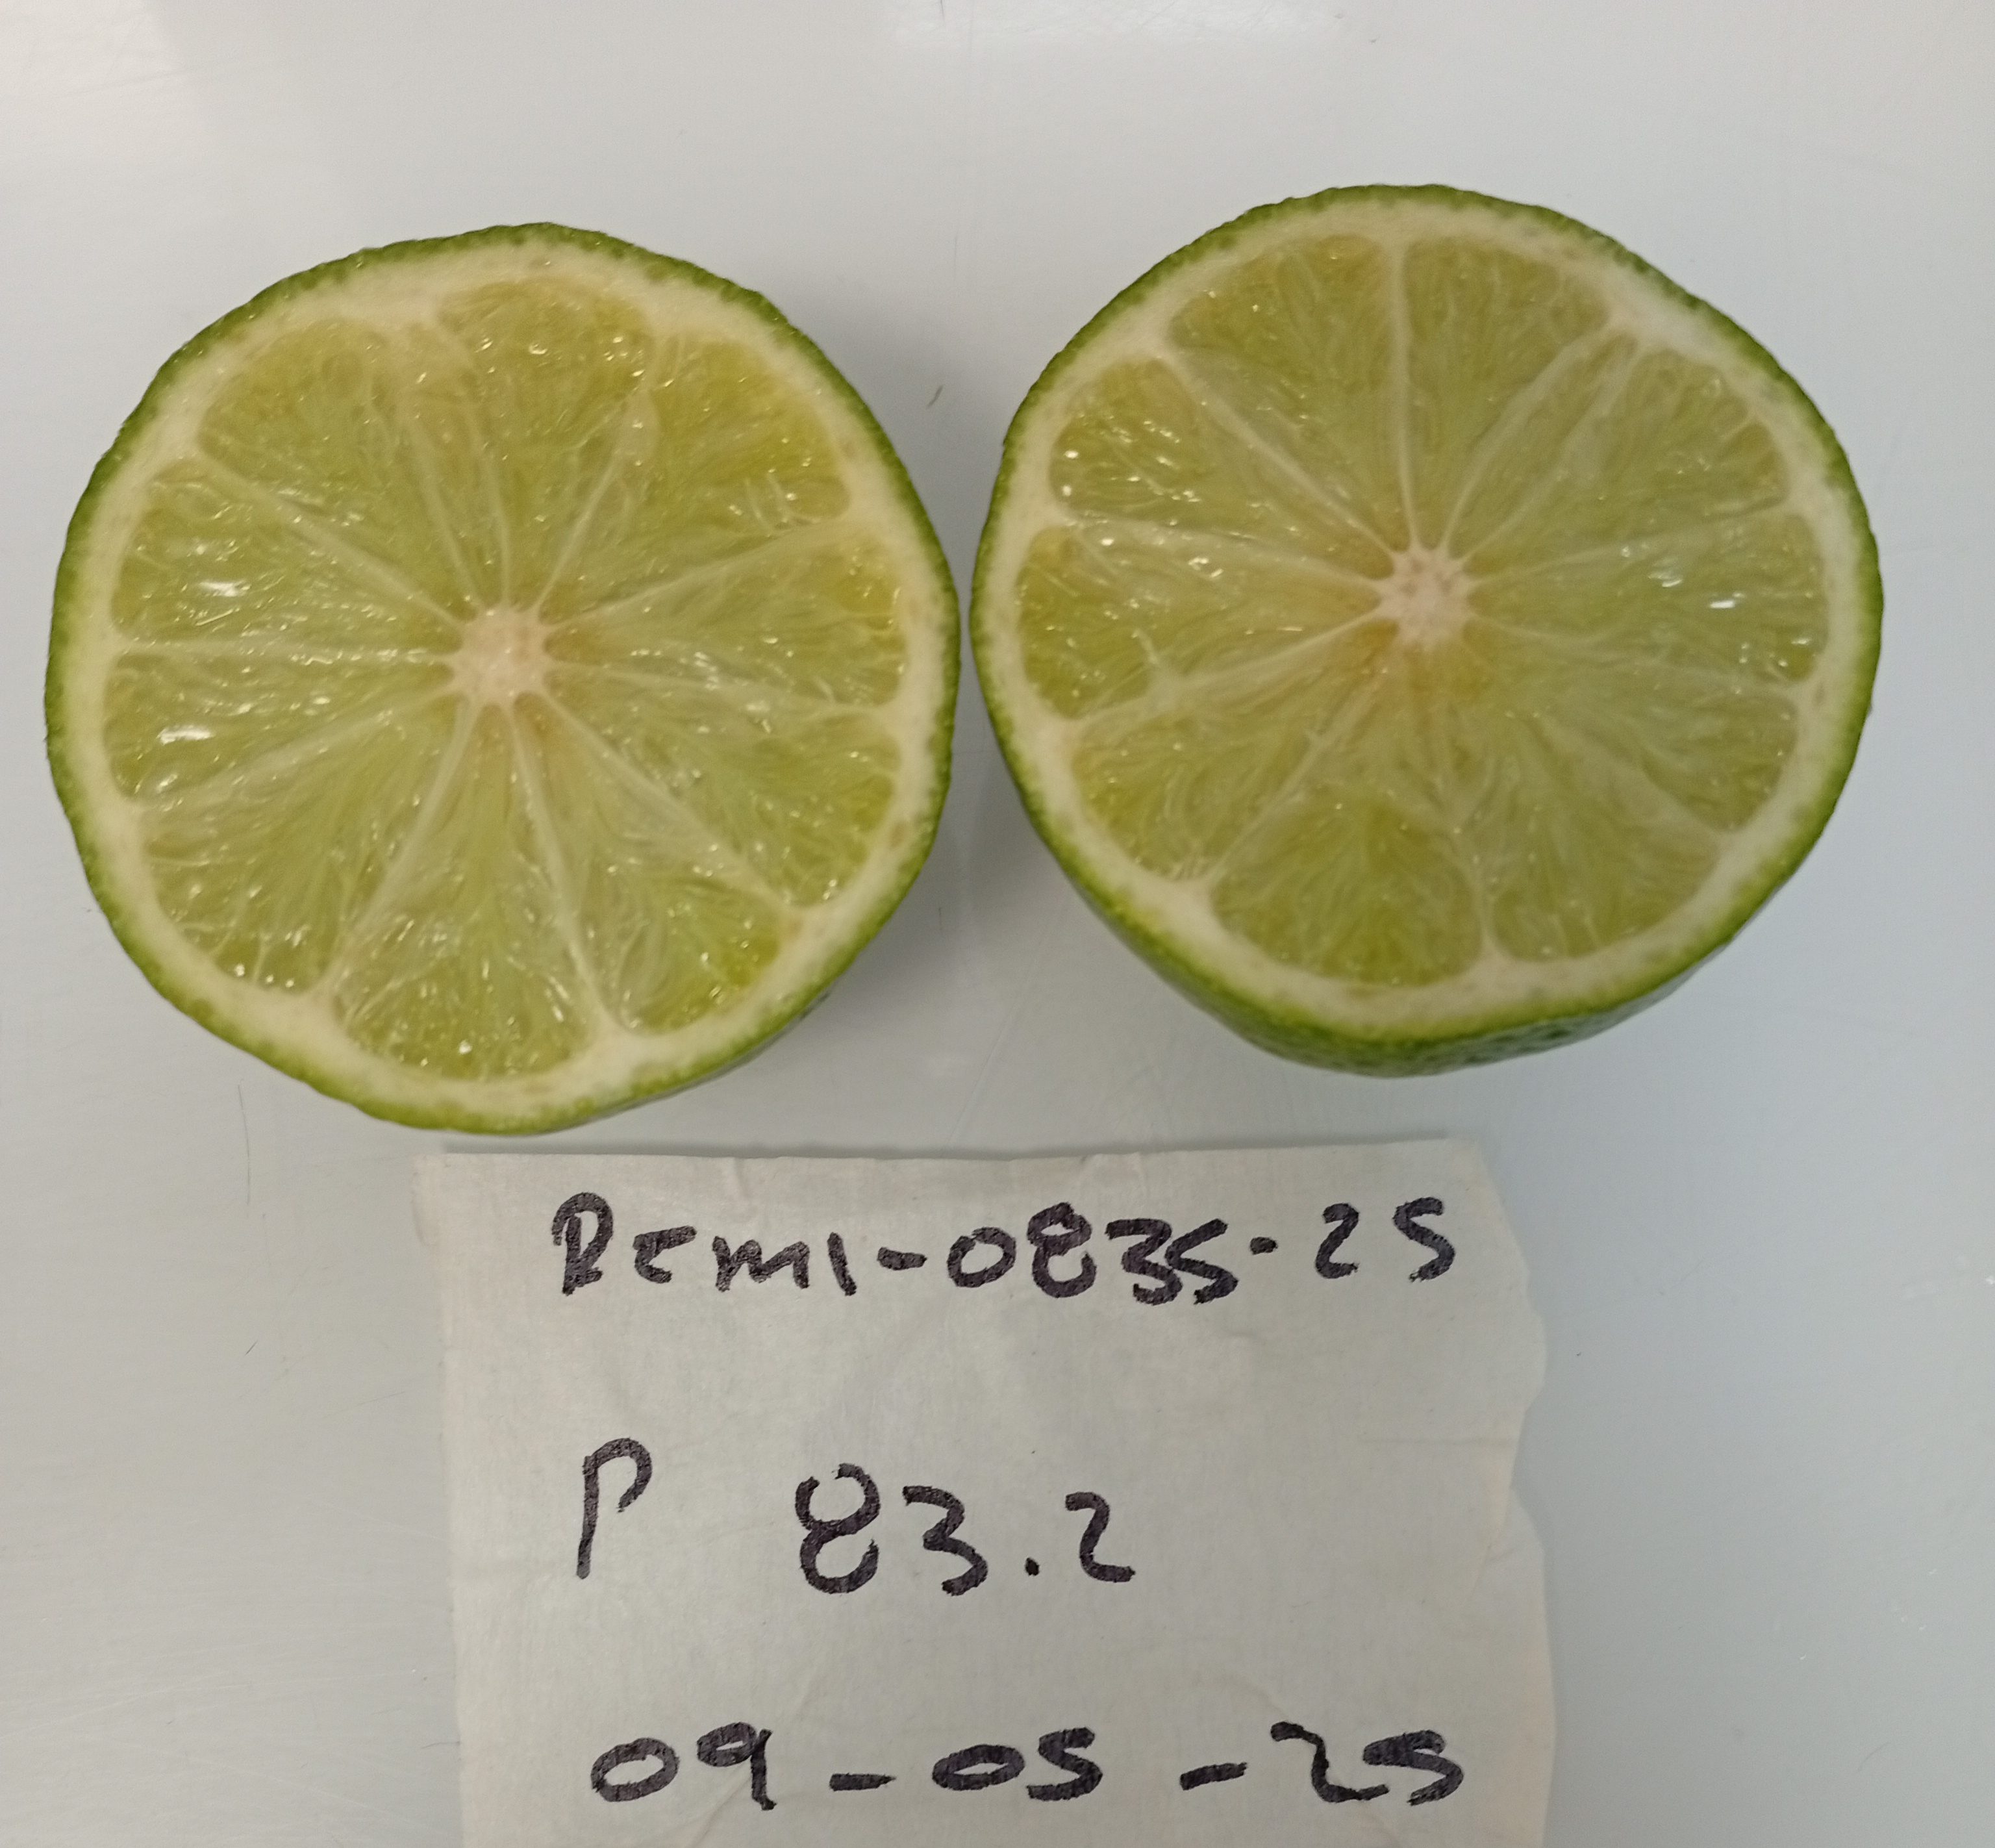 REMI-0835-25
P 83.2
09-05-25